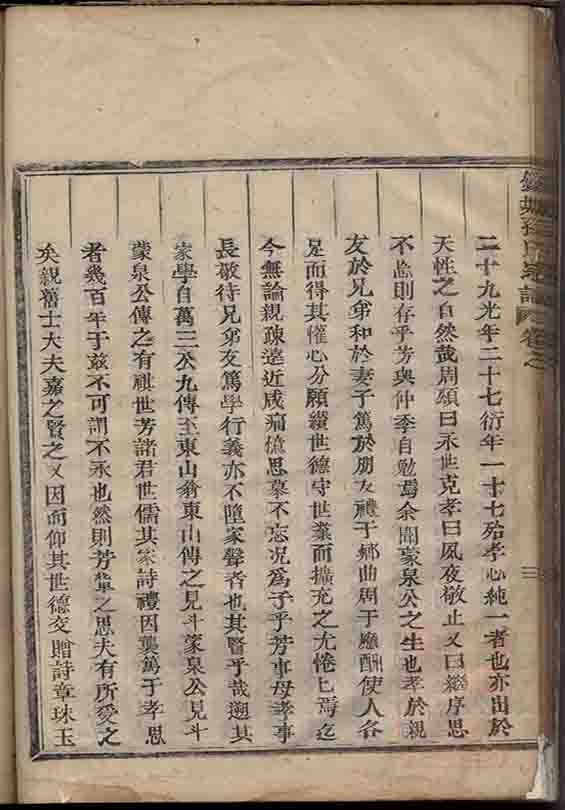 二十九光年二十七衍年一十七殆孝心純一者也亦出於
天性之自然哉周頌曰永世克孝曰夙夜敬止又曰繼序思
不忘則存乎芳與仲季自勉焉余聞蒙泉公之生也孝於親
友於兄弟和於妻子篤於朋友禮于鄉曲周于應酬使人各
足而得其懽心分願纘世德守世業而擴充之尤惓匕焉迄
今無論親疎遠近咸痛億思慕不忘况為子乎芳事母孝事
長敬待兄弟友篤學行義亦不墮家聲者也其賢乎哉遡其
家學自萬三公九傳至東山翁東山傳之見斗蒙泉公見斗
蒙泉公傳之有祺世芳諸君世儒其家詩禮因襲篤于孝思
者幾百年于兹不可謂不永也然則芳輩之思夫有所受之
矣親舊士大夫嘉之賢之又因而仰其世德交贈詩章珠玉
孫氏 卷之
三